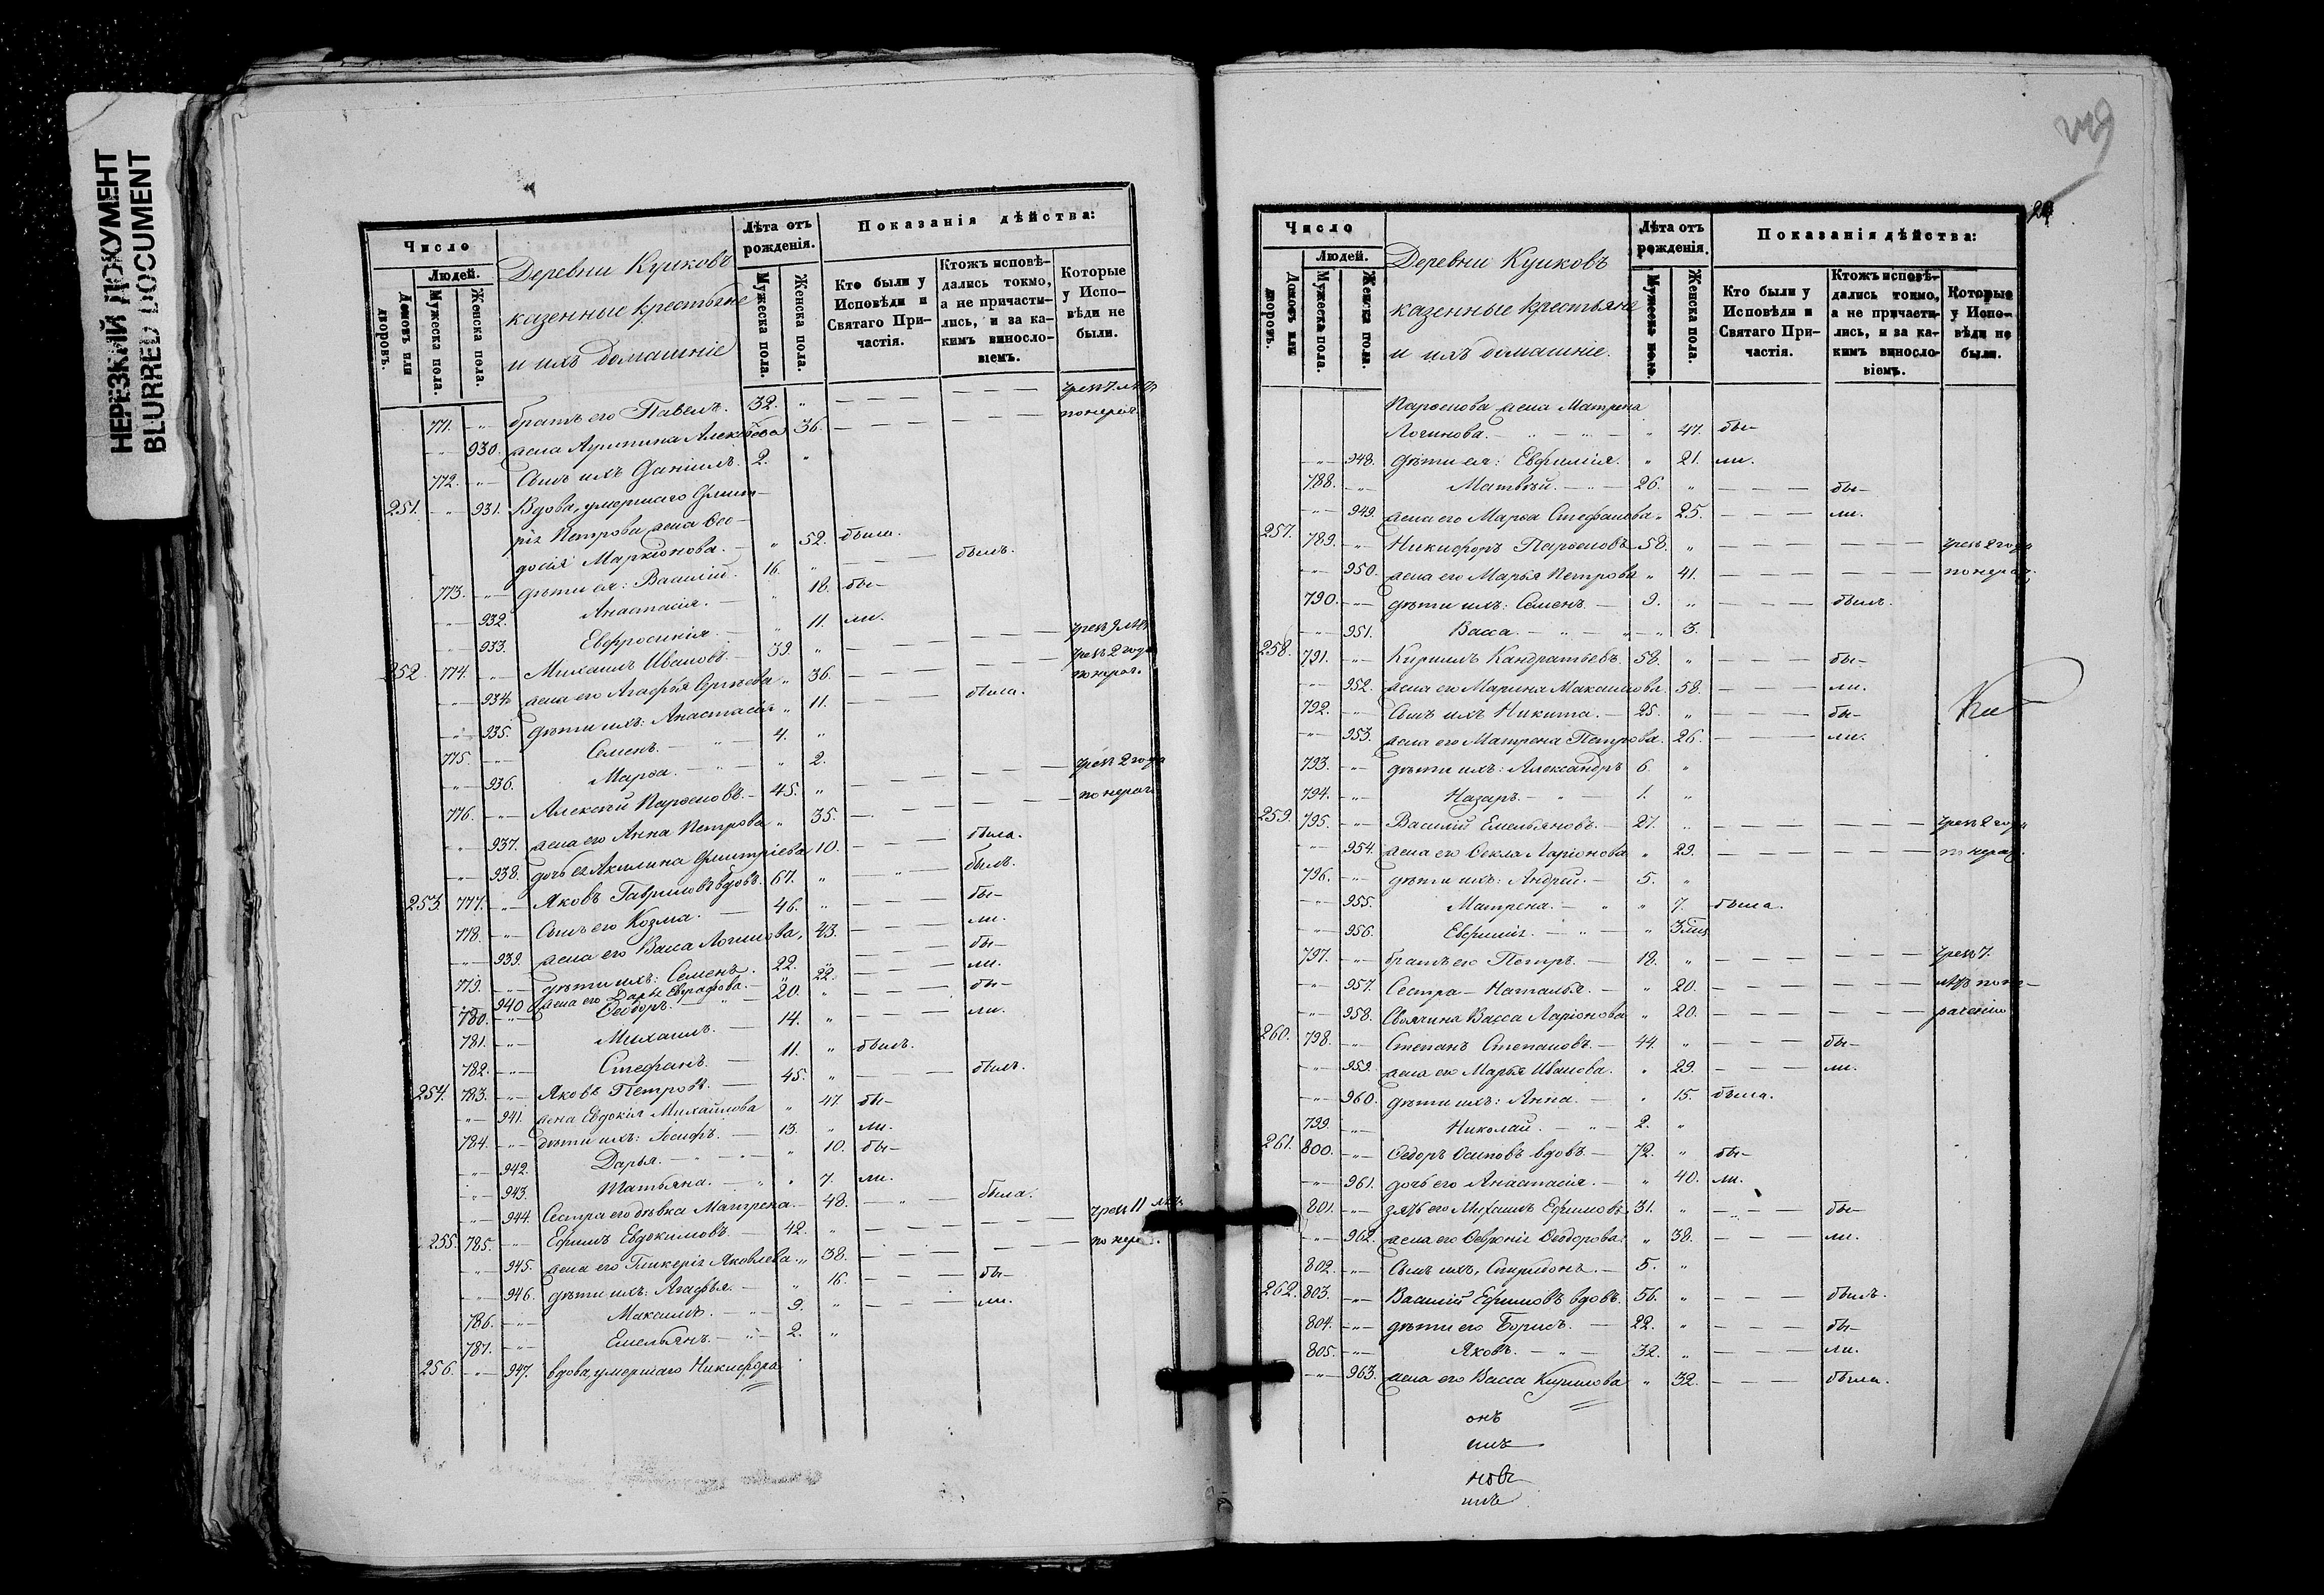 НЕРЕЗКИЙ ДОКУМЕНТ
BLURRED DOCUMENT
Число
Людей.
Домовъ или дворовъ.
Мужеска пола
Женска пола.
Деревни Кушковъ
казенные крестьяне
и ихъ домашніе
Лѣта отъ рожденія.
Мужеска пола.
Женска пола.
Показанія дѣйства:
Кто были у Исповѣди и Святаго Причастія.
Ктожъ исповѣдались токмо, а не причастились, и за какимъ винословіемъ.
Которые у Исповѣди не были.
771. братъ его Павелъ. 32. „ — — — —
930. жена 36. — — — —
772. Сынъ ихъ Даніилъ. 2. „
251. 931. Вдова, умершаго Дмит-
рія Петрова жена Ѳео-
досія Маркіонова. — „ 52. была.
773. дѣти ея: Василій. 16. „ — — былъ.
932. Анастасія. — „ 18. бы-
933. Евфросинія. — „ 11. ли.
252. 774. Михаилъ Ивановъ. 39. „ — — — —
934. жена его Агафья Сергѣева „ 36. — — — — чрезъ 2 года
935. дѣти ихъ: Анастасія „ 11. — — была.
775. Семенъ. — 4. „
936. Марѳа. — „ 2.
776. Алексѣй Парѳеновъ. — 45. „ — — — — чрезъ 2 года
937. жена его Анна Петрова „ 35. — — — — по нерач.
938. дочь ея Акилина Дмитріева 10. — — — была.
253. 777. Яковъ Гавриловъ вдовъ. 67. „ — „ — былъ.
778. Сынъ его Козма. — 46. „ — — — бы-
939. жена его Васса Логинова, 43. — — — ли.
779. дѣти ихъ: Семенъ. 22. „ — — — бы-
940 жена его Дарья Евграфова. — „ 22. — — — ли.
780. Ѳеодоръ. — 20. „ — — — бы-
781. Михаилъ. 14. „ — — — ли.
782. Стефанъ. — 11. „ былъ.
254. 783. Яковъ Петровъ. — 45. „ — — былъ.
941. жена Евдокія Михайлова „ 47. бы-
784. дѣти ихъ: Іосифъ. — 13. „ ли.
942. Дарья. — „ 10. бы-
943. Татьяна. — „ 7. ли.
944. Сестра его дѣвка Матрена. — 48. — „ — была.
255. 785. Ефимъ Евдокимовъ. — 42. „ — — — — чрезъ 11 лѣтъ
945. жена его Гликерія Яковлева. „ 38. — — — —
946. дѣти ихъ: Агафья. — „ 16. — — — бы-
786. Максимъ. — 9. „ — — — ли.
787. Емельянъ. — 2. „
256. 947. вдова, умершаго Никифора
Число
Людей.
Домовъ или дворовъ.
Мужеска пола.
Женска пола.
Деревни Кушковъ
казенные крестьяне
и ихъ домашніе.
Лѣта отъ рожденія.
Мужеска пола.
Женска пола.
Показанія дѣйства:
Кто были у Исповѣди и Святаго Причастія.
Ктожъ исповѣдались токмо, а не причастились, и за какимъ винословіемъ.
Которые у Исповѣди не были.
Парѳенова жена Матрена
Логинова. — „ 47. бы-
948. дѣти ея: Евфимія. „ 21. ли.
788. Матвѣй. — 26. „ — — — бы-
949. жена его Марѳа Стефанова „ 25. — — — ли.
257. 789. Никифоръ Парѳеновъ 58. „ — — — — — чрезъ 2 года
950. жена его Марья Петрова „ 41. — — — — — по нерач.
790. дѣти ихъ: Семенъ. — 9. „ — — — былъ.
951. Васса. — „ — „ 3.
258. 791. Кирилъ Кандратьевъ. 58. „ — — — бы-
952. жена его Марина Максимова. 58. — — — ли.
792. Сынъ ихъ Никита. — 25. „ — — — бы-
953. жена его Матрена Петрова. 26. — — — ли.
793. дѣти ихъ: Александръ 6. „
794. Назаръ. — „ — 1. „
259. 795. Василій Емельяновъ. — 27. „ — — — — — чрезъ 2 года
954. жена его Ѳекла Ларіонова „ 29. — — — — — по нерач.
796. дѣти ихъ: Андрей. — 5. „
955. Матрена. — „ „ 7. была.
956. Евфимія. — „ — „
797. братъ его Петръ. — 18. „ — — — — — чрезъ 7.
957. Сестра — Наталья. — „ 20. — — — — — лѣтъ по не-
958. Своячина Васса Ларіонова „ 20. — — — — — раченію
260. 798. Степанъ Степановъ. — 44. „ — — — бы-
959. жена его Марья Иванова. „ 29. — — — ли.
960. дѣти ихъ: Анна. — „ 15. была.
799. Николай. — „ — 2. „
261. 800. Ѳедоръ Осиповъ вдовъ. — 72. „ бы-
961. дочь его Анастасія. — „ 40. ли.
801. зять его Михаилъ Ефимовъ. 31. „ — — — бы-
962. жена его Ѳевронія Ѳеодорова. „ 38. — — — ли.
802. Сынъ ихъ, Спиридонъ. — 5. „
262. 803. Василій Ефимовъ вдовъ. 56. „ — — — былъ.
804. дѣти его Борисъ. — 22. „ — — — бы-
805. Яковъ. — „ — 32. „ — — — ли.
963. жена его Васса Кирилова „ 32. — — — была.
онъ